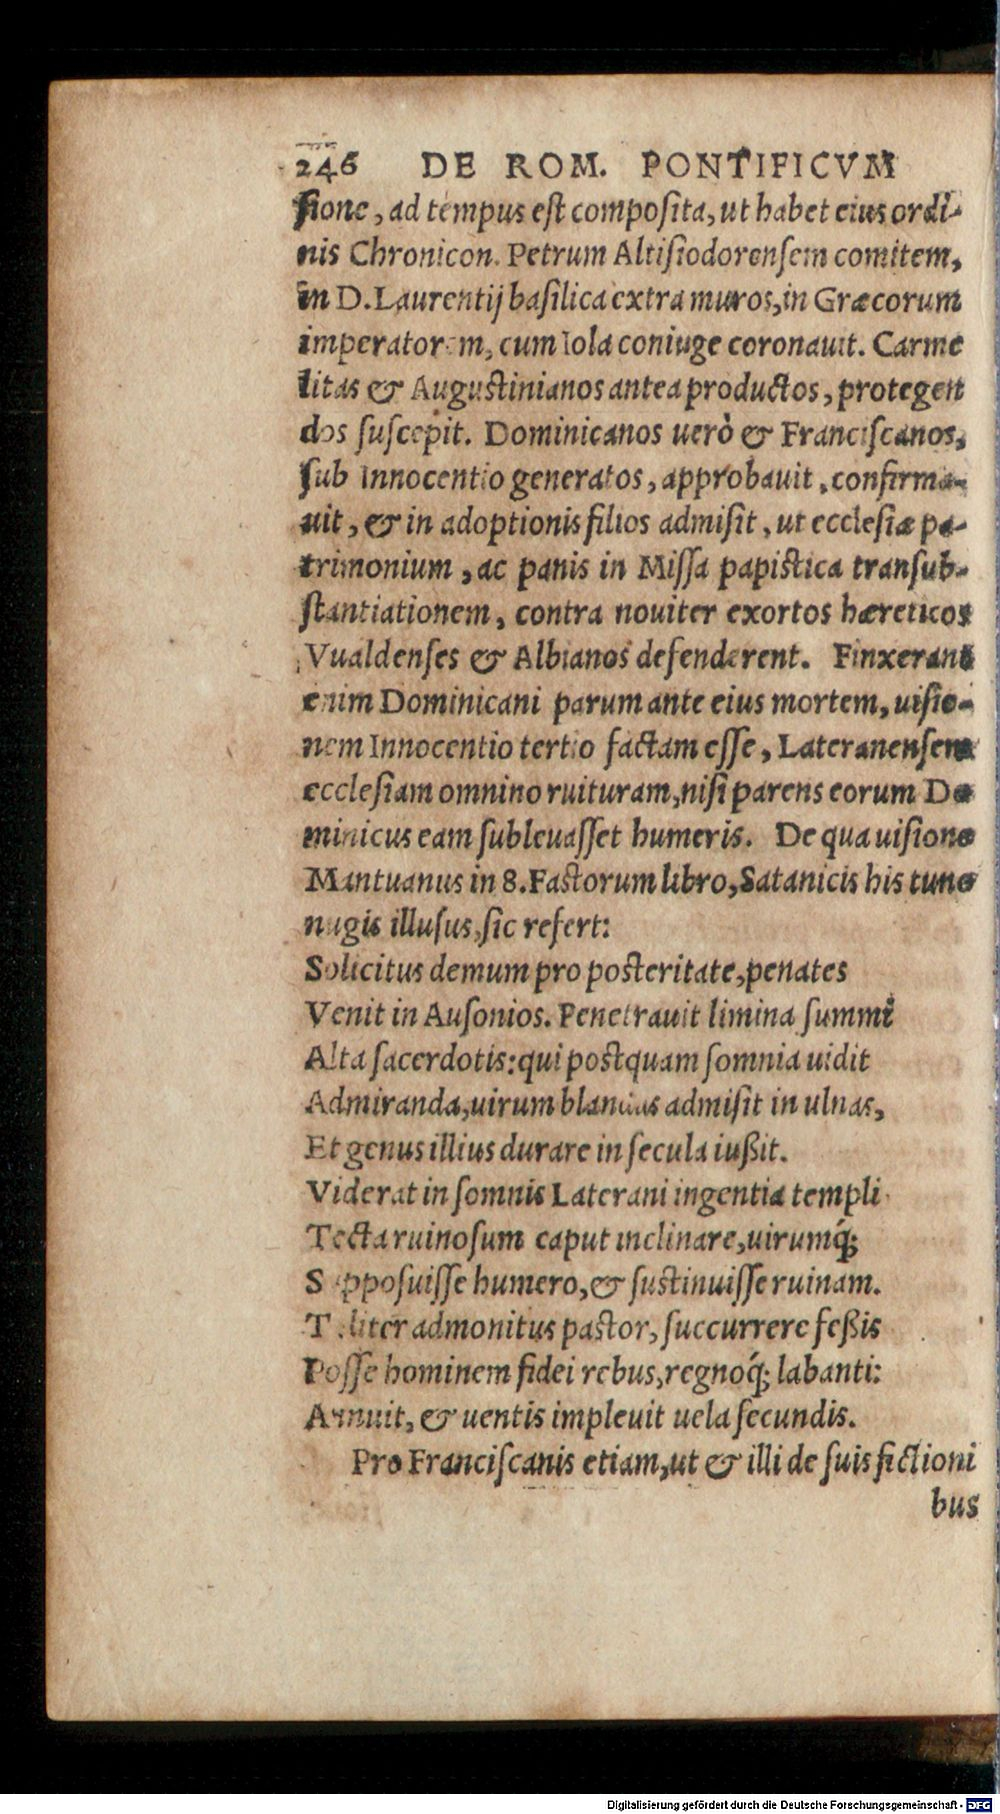 246 DE ROM. PONTIFICVM
ſione, ad tempus eſt compoſita, ut habet eius ordi-
nis Chronicon. Petrum Altiſiodorenſem comitem,
in D. Laurentij baſilica extra muros, in Græcorum
imperatorem, cum Iola coniuge coronauit. Carme
litas & Auguſtinianos antea productos, protegen
dos ſuſcepit. Dominicanos uerò & Franciſcanos,
ſub Innocentio generatos, approbauit, confirma-
uit, & in adoptionis filios admiſit, ut eccleſiæ pa-
trimonium, ac panis in Miſſa papiſtica tranſub-
ſtantiationem, contra nouiter exortos hæreticos
Vualdenſes & Albianos defenderent. Finxerant
enim Dominicani parum ante eius mortem, uiſio-
nem Innocentio tertio factam eſſe, Lateranenſem
eccleſiam omnino ruituram, niſi parens eorum Do
minicus eam ſubleuaſſet humeris. De qua uiſione
Mantuanus in 8. Faſtorum libro, Satanicis his tunc
nugis illuſus, ſic refert:
Solicitus demum pro poſteritate, penates
Venit in Auſonios. Penetrauit limina ſummi
Alta ſacerdotis: qui poſtquam ſomnia uidit
Admiranda, uirum blandus admiſit in ulnas,
Et genus illius durare in ſecula iußit.
Viderat in ſomnis Laterani ingentia templi
Tecta ruinoſum caput inclinare, uirumq́;
Suppoſuiſſe humero, & ſuſtinuiſſe ruinam.
Taliter admonitus paſtor, ſuccurrere feßis
Poſſe hominem fidei rebus, regnoq́; labanti:
Annuit, & uentis impleuit uela ſecundis.
Pro Franciſcanis etiam, ut & illi de ſuis fictioni
bus
Digitalisierung gefördert durch die Deutsche Forschungsgemeinschaft - DFG